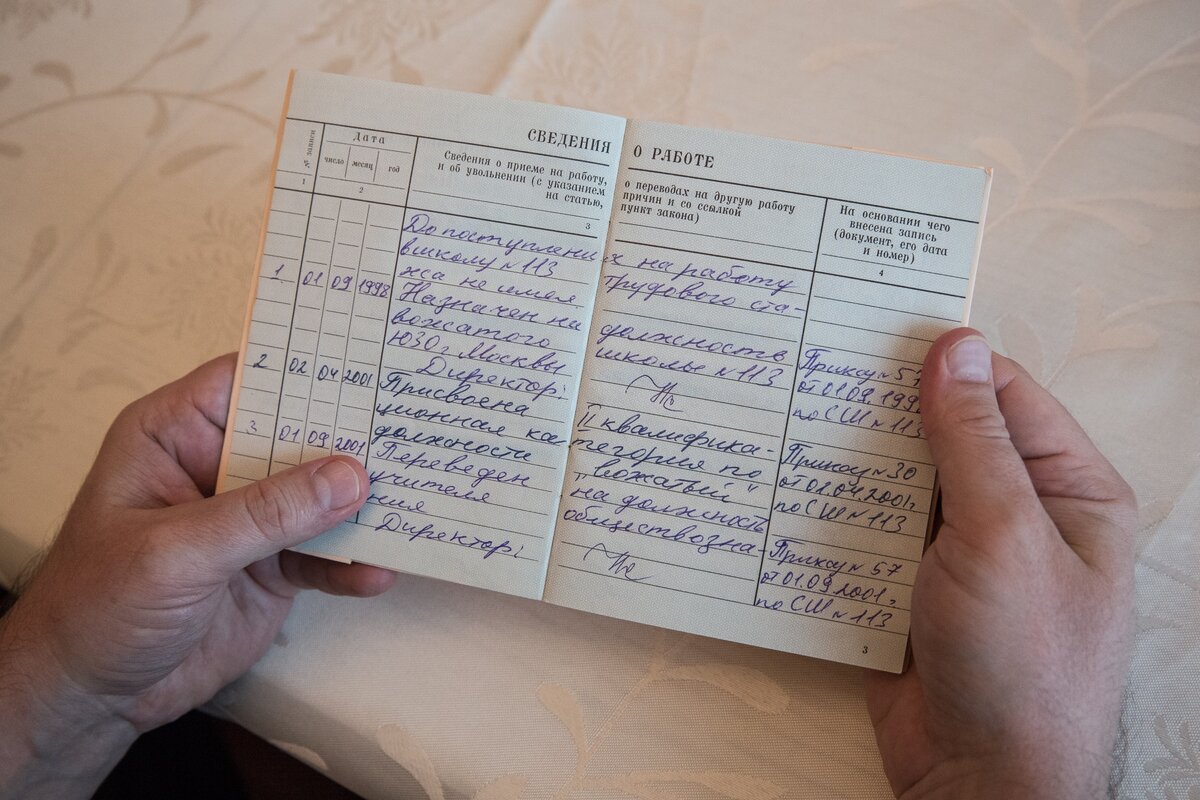 СВЕДЕНИЯ О РАБОТЕ
№ записи
Дата
число месяц год
Сведения о приеме на работу, о переводах на другую работу
и об увольнении (с указанием причин и со ссылкой
на статью, пункт закона)
На основании чего
внесена запись
(документ, его дата
и номер)
1 2 3 4
До поступления на работу
в школу №113 трудового ста-
жа не имел
1 01 09 1998 Назначен на должность
вожатого школы №113
ЮЗО г. Москвы
Директор:
Приказ №57
от 01.09.199
по СШ №113
2 02 04 2001 Присвоена II квалифика-
ционная категория по
должности "вожатый"
Приказ №30
от 01.04.2001г.
по СШ №113
3 01 09 2001 Переведен на должность
учителя обществозна-
ния
Директор:
Приказ №57
от 01.09.2001г.
по СШ №113
3